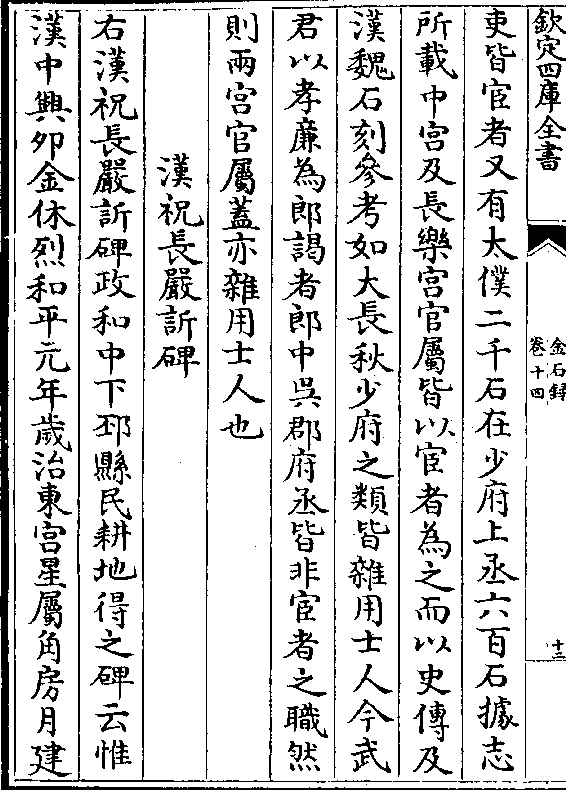 欽定四庫全書
金石録
卷十四
十三
吏皆宦者又有太僕二千石在少府上丞六百石據志
所載中宮及長樂宮官屬皆以宦者為之而以史傳及
漢魏石刻參考如大長秋少府之類皆雜用士人今武
君以孝廉為郎謁者郎中吳郡府丞皆非宦者之職然
則兩宮官屬蓋亦雜用士人也
漢祝長嚴訢碑
右漢祝長嚴訢碑政和中下邳縣民耕地得之碑云惟
漢中興卯金休烈和平元年歲治東宮星屬角房月建